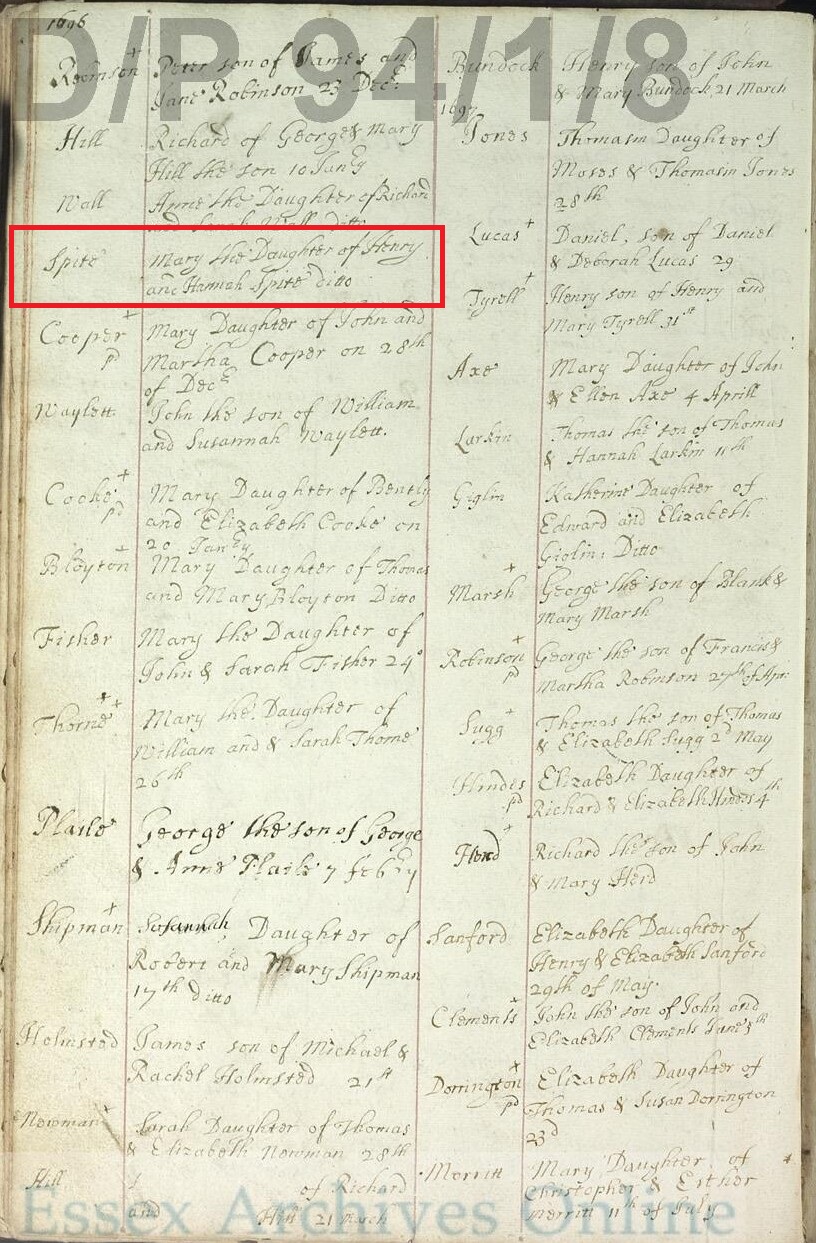 D/P 94/1/8
1696
Robinson + Peter son of James and
Jane Robinson 23 Dec
Hill Richard of George & Mary
Hill the son 10 Jan
Wall Anne the Daughter of Richard
and Sarah Wall ditto
Spite Mary the Daughter of Henry
and Hannah Spite ditto
Cooper + Mary Daughter of John and
pd Martha Cooper on 28th
of Dec
Waylett John the son of William
and Susannah Waylett.
Cooke + Mary Daughter of Bently
pd and Elizabeth Cooke on
20 Jan
Bloyton + Mary Daughter of Thomas
and Mary Bloyton Ditto
Fisher Mary the Daughter of
John & Sarah Fisher 24
Thorne + Mary the Daughter of
William and & Sarah Thorne
26th
Plaile George the son of George
& Anne Plaile 7 feb
Shipman + Susannah Daughter of
Robert and Mary Shipman
17th ditto
Holmsted James son of Michael &
Rachel Holmsted 21st
Newman + Sarah Daughter of Thomas
& Elizabeth Newman 28th
Hill of Richard
and Hill 21 March
Bundock Henry son of John
& Mary Bundock 21 March
1697
Jones Thomasin Daughter of
Moses & Thomasin Jones
28th
Lucas + Daniel, son of Daniel
& Deborah Lucas 29
Tyrell + Henry son of Henry and
Mary Tyrell 31st
Axe Mary Daughter of John
& Ellen Axe 4 Aprill
Larkin Thomas the son of Thomas
& Hannah Larkin 11th
Giglin Katherine Daughter of
Edward and Elizabeth
Giglin: Ditto
Marsh + George the son of Blank &
Mary Marsh
Robinson + George the son of Francis &
pd Martha Robinson 27th of Apr
Sugg + Thomas the son of Thomas
& Elizabeth Sugg 2d May
Hindes Elizabeth Daughter of
pd Richard & Elizabeth Hindes 4th
Herd + Richard the son of John
& Mary Herd
Sanford Elizabeth Daughter of
Henry & Elizabeth Sanford
29th of May.
Clements + John the son of John and
Elizabeth Clements June
Dorrington + Elizabeth Daughter of
pd Thomas & Susan Dorrington
23d
Merritt Mary Daughter of
Christopher & Esther
Merritt 11th of July
Essex Archives Online